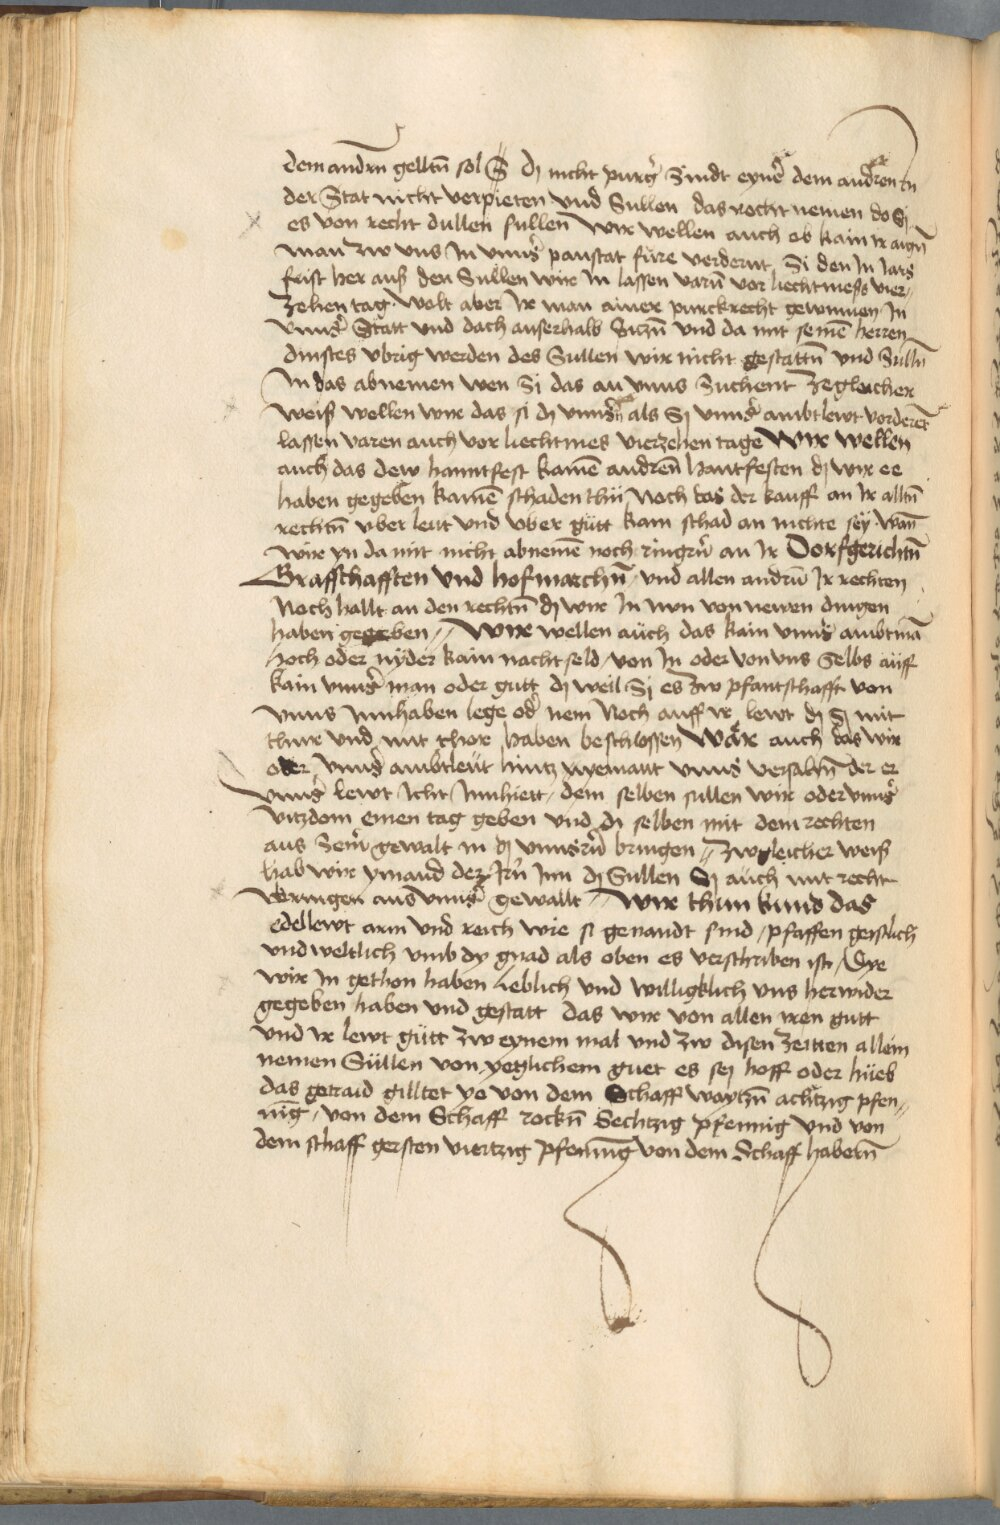 dem andrn gelltn sol dj nicht purg Sindt eyner dem andren In
der Stat nicht verpieten Und Sullen das recht nemen do Sj
es von recht dullen sullen Wir wellen auch ob kain Ir aign
man zw uns In unnser panstat füre verdernt Si den In Jars
frist her auß den Sullen wir In lassen varn vor liechtmess vier„
zehen tag Wolt aber Ir man ainer purckrecht gewinnen In
unnser Statt und doch auserhalb Sitzn und da mit seinē herren
dinstes ubrig werden des Sullen wir nicht gestattn und Sulln
In das abnemen wen Si das an unns Suchent Ze gleicher
weiß wellen wir das si dj unnsern als Sj unnser ambtlewt vorderēt
lassen varen auch vor liechtmes vierzehen tage Wir wellen
auch das dew hanntfest kainē andren hantfesten dj wir ee
haben gegeben kainē schaden thü Noch das der kauff an Ir alltn
rechtn uber leut und uber gütt kain schad an nichte sey wan
wir yn da mit nicht abnemē noch ringrn an Ir Dorfgerichtn
Graffschafften Und hofmarchn und allen andrn Ir rechten
Noch hallt an den rechtn dj wir In nun von newen dingen
haben gegeben „ Wir wellen auch das kain unnser ambtmā
hoch oder nyder kain nacht seld von In oder von uns Selbs auff
kain unnser man oder gutt dj weil Sj es zw pfantschafft von
unns Innhaben lege oder nem Noch auff ir lewt dj Sj mit
thur und mit thor haben beschlossen Wär auch das wir
oder unnser ambtleut hintz yemant unns versaltn der er
unnser lewt Icht Innhiett dem selben sullen wir oder unnser
vitzdom einen tag geben und di selben mit dem rechten
aus Seinr gewalt in dj unnsern bringen „ Zw gleicher weiß
hab wir ymand der Irn Inn dj Sullen Sj auch mit recht
bringen aus unnser gewallt „ Wir thun kund das
edellewt arm und reich wie si genandt sind pfaffen geistlich
und weltlich umb dy gnad als oben es verschriben ist Dye
wir In gethon haben lieblich und willigklich uns herwider
gegeben haben und gestatt das wir von allen iren gutt
und Ir lewt gütt zw eynem mal und zw disen zeitten allein
nemen Süllen von yetzlichem guet es sej hoff oder hueb
das getraid gilltet yo von dem Schaff waytzn achtzig pfen„
nig von dem Schaff rockn Sechtzig pfennig Und von
dem schaff gersten viertzig pfenning von dem Schaff habern